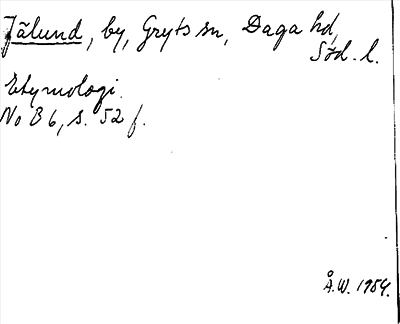 Jälund, by, Gryts sn, Daga hd,
Söd. l.
Etymologi.
No B 6, s. 52 f.
Å.W. 1954.